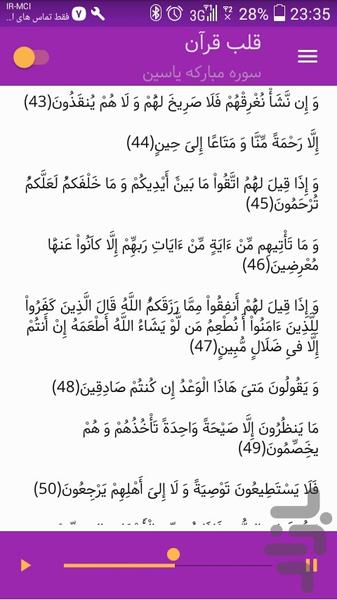 IR-MCI
فقط تماس های ا...
3G
28%
23:35
قلب قرآن
سوره مبارکه یاسین
وَ إِن نَّشَأْ نُغْرِقْهُمْ فَلَا صَرِيخَ لهَمْ وَ لَا هُمْ يُنقَذُونَ(43)
إِلَّا رَحْمَةً مِّنَّا وَ مَتَاعًا إِلىَ حِينٍ(44)
وَ إِذَا قِيلَ لهَمُ اتَّقُواْ مَا بَينَ أَيْدِيكُمْ وَ مَا خَلْفَكمُ لَعَلَّكمُ
تُرْحَمُونَ(45)
وَ مَا تَأْتِيهِم مِّنْ ءَايَةٍ مِّنْ ءَايَاتِ رَبهِّمْ إِلَّا كاَنُواْ عَنهْا
مُعْرِضِينَ(46)
وَ إِذَا قِيلَ لهَمْ أَنفِقُواْ مِمَّا رَزَقَكمُ اللَّهُ قَالَ الَّذِينَ كَفَرُواْ
لِلَّذِينَ ءَامَنُواْ أَ نُطْعِمُ مَن لَّوْ يَشَاءُ اللَّهُ أَطْعَمَهُ إِنْ أَنتُمْ
إِلَّا فىِ ضَلَالٍ مُّبِينٍ(47)
وَ يَقُولُونَ مَتىَ هَاذَا الْوَعْدُ إِن كُنتُمْ صَادِقِينَ(48)
مَا يَنظُرُونَ إِلَّا صَيْحَةً وَاحِدَةً تَأْخُذُهُمْ وَ هُمْ
يخَصِّمُونَ(49)
فَلَا يَسْتَطِيعُونَ تَوْصِيَةً وَ لَا إِلىَ أَهْلِهِمْ يَرْجِعُونَ(50)